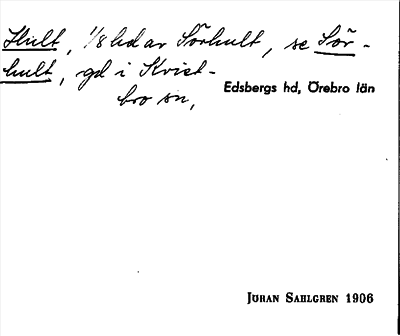 Hult, 1/8 hd av Sörhult, se Sör-
hult, gd i Kvist-
bro sn,
Edsbergs hd, Örebro län
JÖRAN SAHLGREN 1906